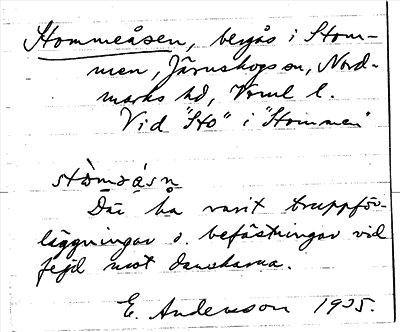 Stommeåsen, bergås i Stom-
men, Järnskogs sn, Nord-
marks hd, Vrml l.
Vid "Sto" i "Stommen"
stòmɔása̧n
Där ha varit truppför-
läggningar o. befästningar vid
fejd mot danskarna.
E. Anderson 1935.